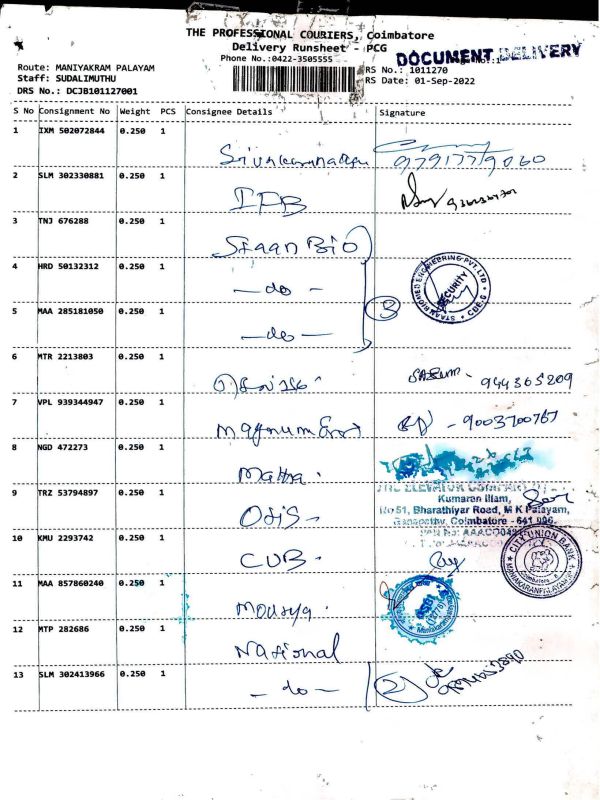 THE PROFESSIONAL COURIERS, Coimbatore
Delivery Runsheet - PCG
Phone No.:0422-3505555
DOCUMENT DELIVERY
Route: MANIYAKRAM PALAYAM
Staff: SUDALIMUTHU
DRS No.: DCJB101127001
RS No.: 1011270
RS Date: 01-Sep-2022
S No Consignment No Weight PCS Consignee Details Signature
1 IXM 502072844 0.250 1
9791779060
2 SLM 302330881 0.250 1
IFB
3 TNJ 676288 0.250 1
Staan Bio
4 HRD 50132312 0.250 1
- do -
STAAN BIOMED ENGINEERING PVT LTD
SECURITY
CBE-6
5 MAA 285181050 0.250 1
- do -
3
6 MTR 2213803 0.250 1
944365209
7 VPL 939344947 0.250 1
Magnum
- 9003700767
8 NGD 472273 0.250 1
9 TRZ 53794897 0.250 1
Otis
Kumaran Illam,
No 51, Bharathiyar Road, M K Palayam,
Ganapathy, Coimbatore - 641 006.
10 KMU 2293742 0.250 1
CUB
CITY UNION BANK
11 MAA 857860240 0.250 1
Mourya
12 MTP 282686 0.250 1
National
13 SLM 302413966 0.250 1
- do -
2